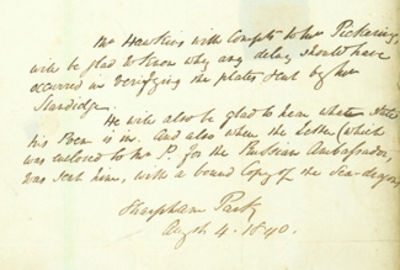 Mr Hawkins with Compts to Mr Pickering,
will be glad to know why any delay should have
occurred in verifying the plates sent by Mr
Standidge.
He will also be glad to hear what state
his Poem is in. And also when the letter (which
was enclosed to Mr P. for the Prussian Ambassador,
was sent him, with a bound Copy of the Sea-dragons
Sharpham Park
Augst 4. 1840.